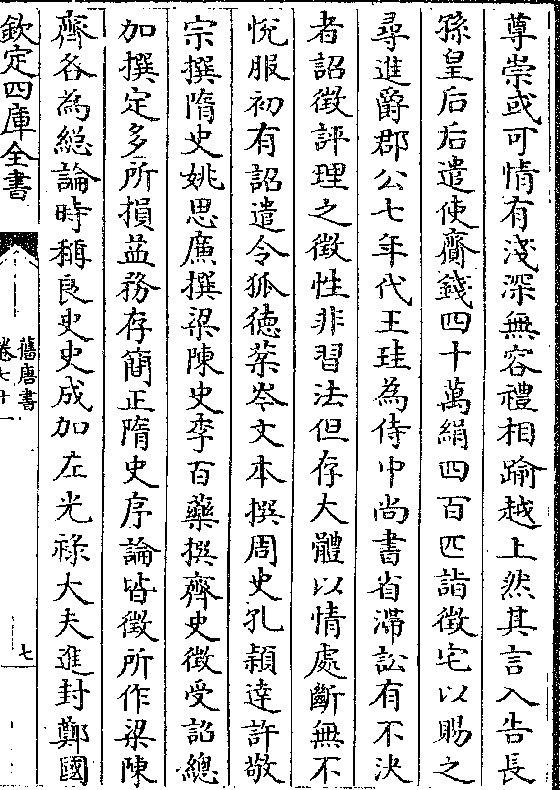 尊崇或可情有淺深無容禮相踰越上然其言入告長
孫皇后后遣使齎錢四十萬絹四百匹詣徵宅以賜之
尋進爵郡公七年代王珪為侍中尚書省滯訟有不決
者詔徵評理之徵性非習法但存大體以情處斷無不
悅服初有詔遣令狐德棻岑文本撰周史孔穎達許敬
宗撰隋史姚思廉撰梁陳史李百藥撰齊史徵受詔總
加撰定多所損益務存簡正隋史序論皆徵所作梁陳
齊各為總論時稱良史史成加左光祿大夫進封鄭國
欽定四庫全書
舊唐書
卷七十一
七